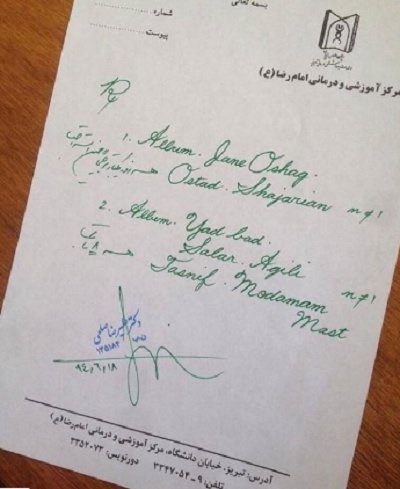 بسمه تعالی
شماره
پیوست
مرکز آموزشی و درمانی امام رضا (ع)
1. Album. June Oshag.
Ostad. Shajarian n=1
2. Album. Yad bad.
Salar. Agili n=1
Tasnif. Modamam
Mast
دکتر علیرضا صلحی
۱۲۵۱۸۲
۹۴،۶،۱۸
آدرس: تبریز، خیابان دانشگاه، مرکز آموزشی و درمانی امام رضا (ع)
تلفن: ۹ـ۳۳۴۷۰۵۴ دورنویس: ۳۳۵۲۰۷۴